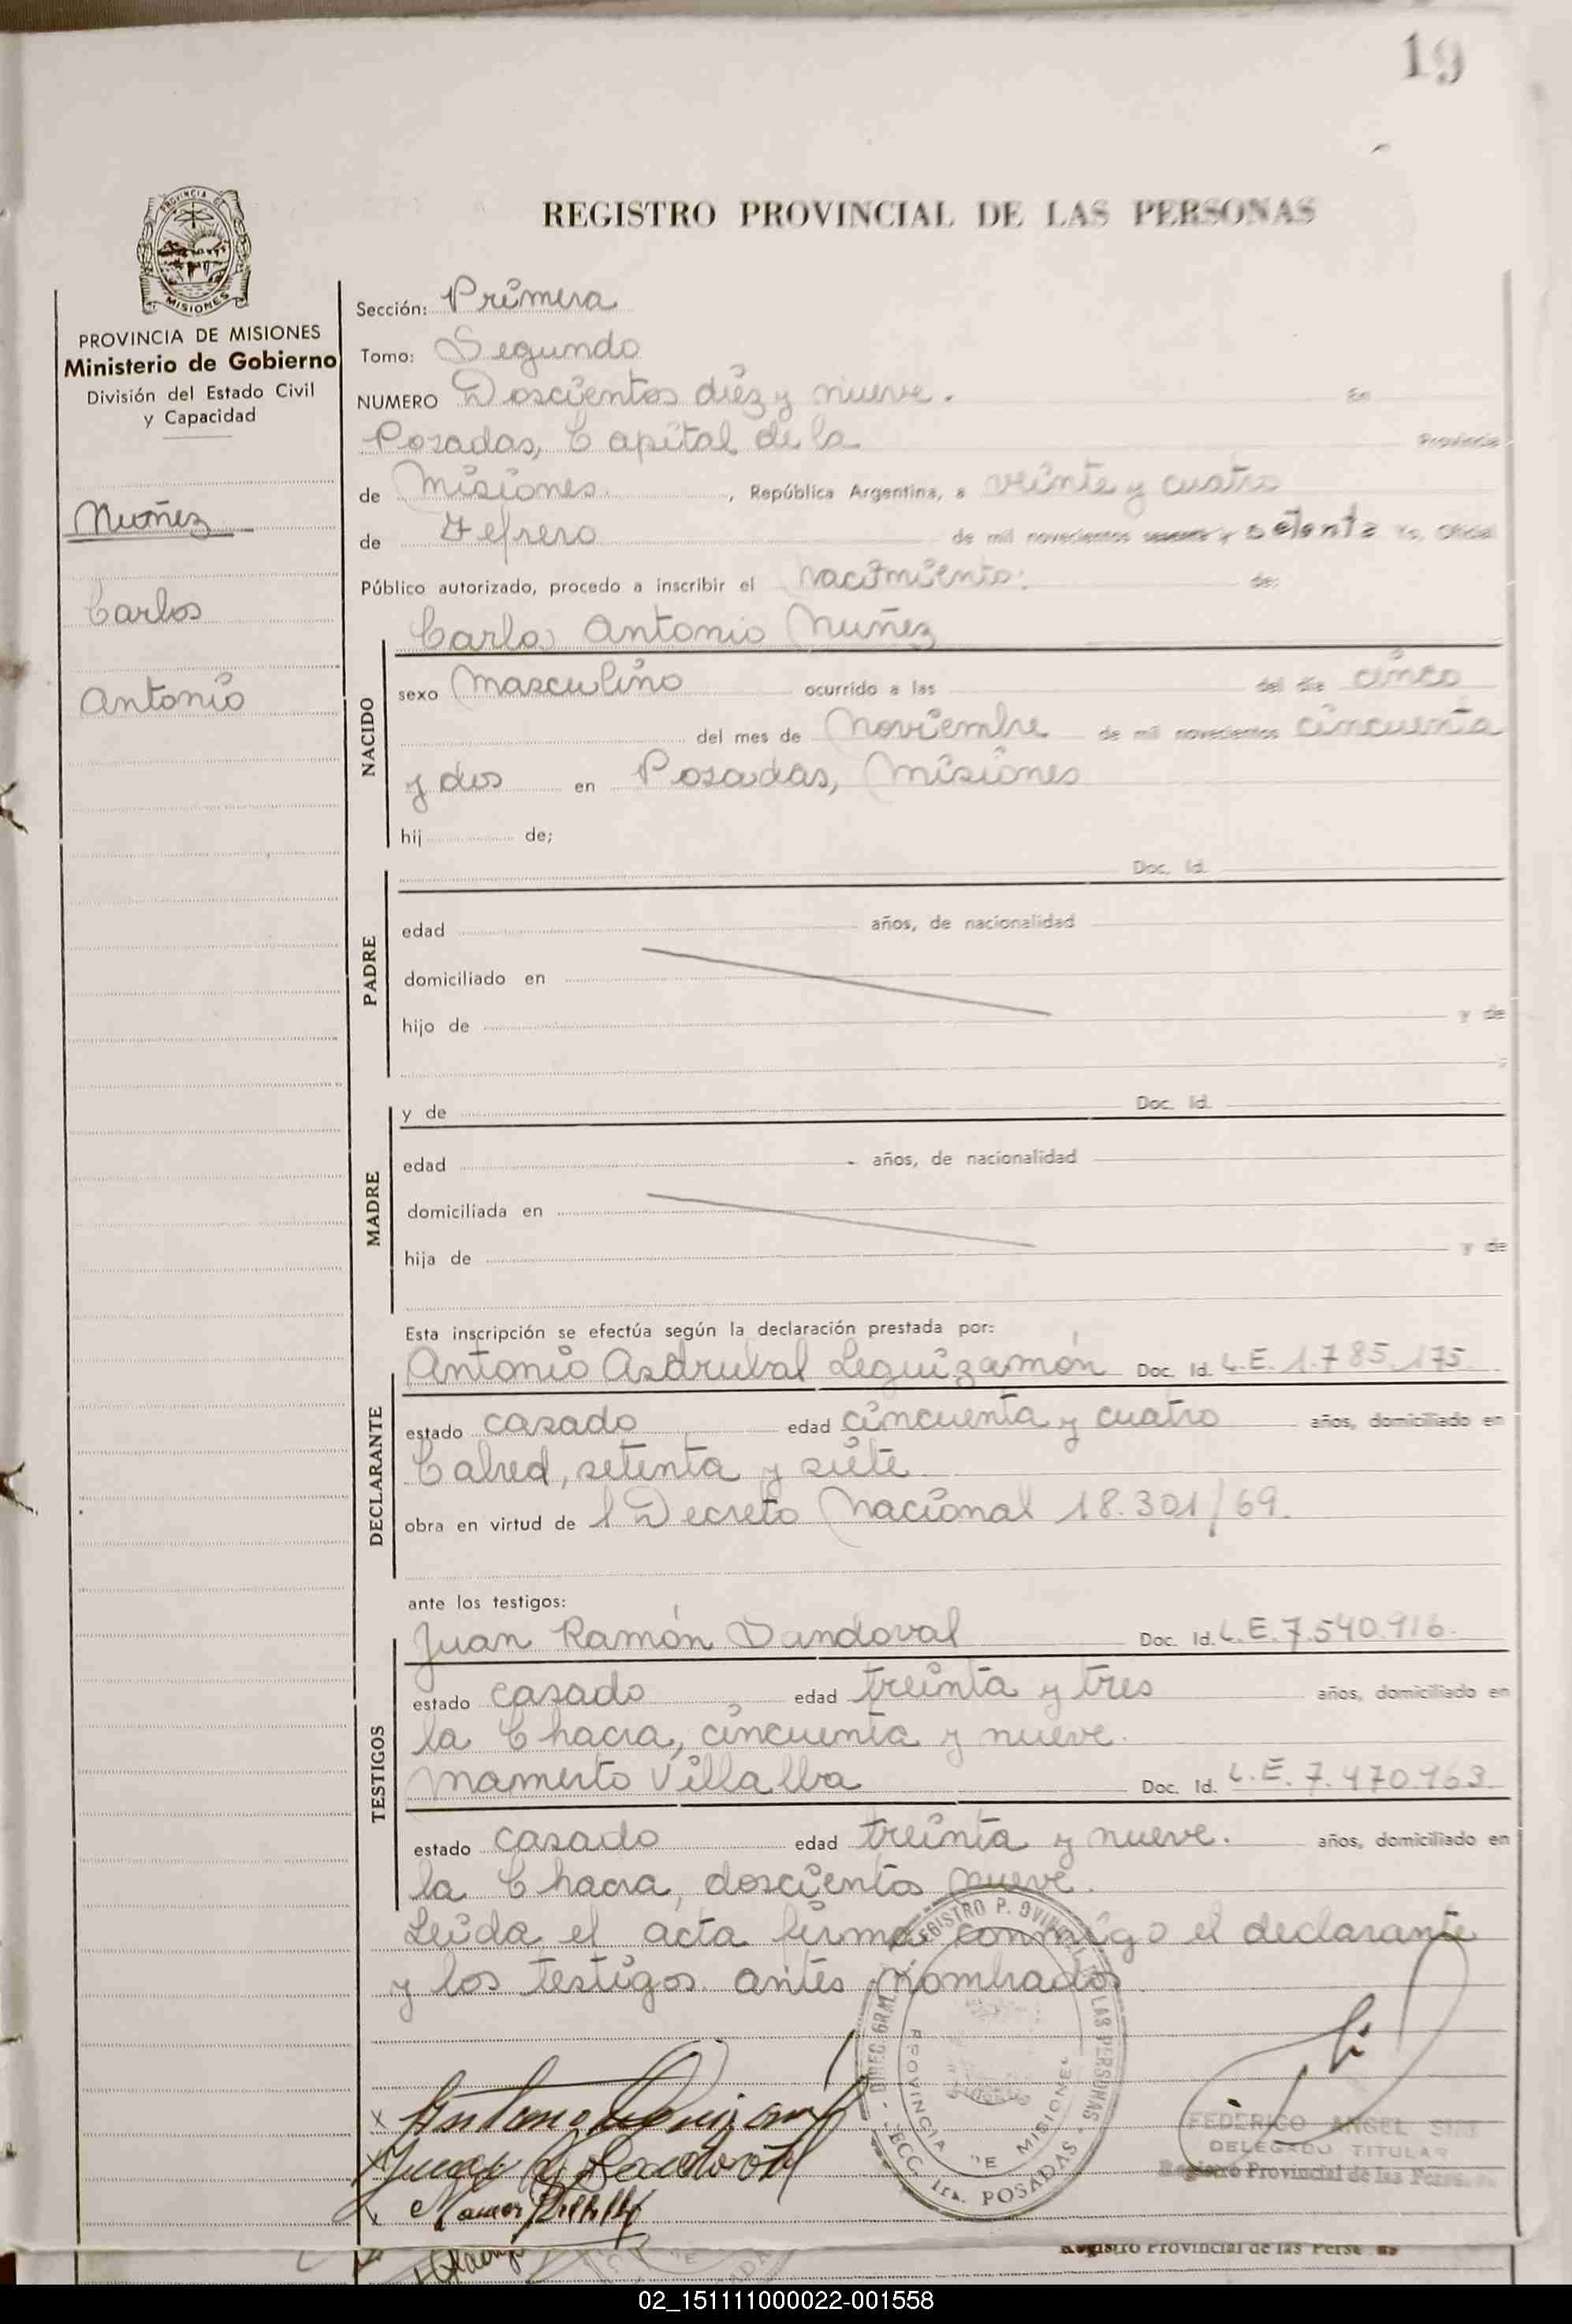 19
REGISTRO PROVINCIAL DE LAS PERSONAS
PROVINCIA DE
MISIONES
PROVINCIA DE MISIONES
Ministerio de Gobierno
División del Estado Civil
y Capacidad
Nuñez
Carlos
Antonio
Sección: Primera
Tomo: Segundo
NUMERO Doscientos diéz y nueve. En
Posadas, Capital de la Provincia
de Misiones, República Argentina, a veinte y cuatro
de Febrero de mil novecientos sesenta y setenta Yo, Oficial
Público autorizado, procedo a inscribir el nacimiento: de:
Carlos Antonio Nuñez
NACIDO
sexo Masculino ocurrido a las del día cinco
del mes de Noviembre de mil novecientos cincuenta
y dos en Posadas, Misiones
hij de;
PADRE
Doc. Id.
edad años, de nacionalidad
domiciliado en
hijo de y de
MADRE
y de Doc. Id.
edad años, de nacionalidad
domiciliada en
hija de y de
Esta inscripción se efectúa según la declaración prestada por:
DECLARANTE
Antonio Asdrubal Leguizamón Doc. Id. L.E. 1.785.175.
estado casado edad cincuenta y cuatro años, domiciliado en
Cabred, setenta y siete
obra en virtud de l Decreto Nacional 18.301/69.
ante los testigos:
TESTIGOS
Juan Ramón Sandoval Doc. Id. L.E. 7.540.916.
estado casado edad treinta y tres años, domiciliado en
la Chacra, cincuenta y nueve.
Mamerto Villalba Doc. Id. L.E. 7.470.963.
estado casado edad treinta y nueve. años, domiciliado en
la Chacra, doscientos nueve.
Leída el acta firma conmigo el declarante
y los testigos antes nombrados
REGISTRO P. OVINCIAL LAS PERSONAS
PROVINCIA DE MISIONES
SECC. 1ra. POSADAS
FEDERICO ANGEL
DELEGADO TITULAR
Registro Provincial de las Personas
Registro Provincial de las Perso as
02_151111000022-001558